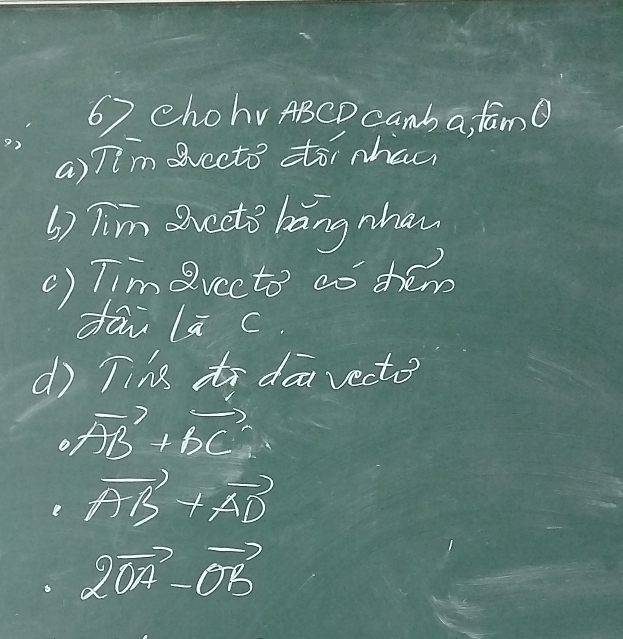 6) Cho hv ABCD cạnh a, tâm O
a) Tìm 2 vectơ đối nhau
b) Tìm 2 vectơ bằng nhau
c) Tìm 2 vectơ có điểm
đầu là C.
d) Tính độ dài vectơ
• \overrightarrow{AB} + \overrightarrow{BC}
• \overrightarrow{AB} + \overrightarrow{AD}
• 2\overrightarrow{OA} - \overrightarrow{OB}